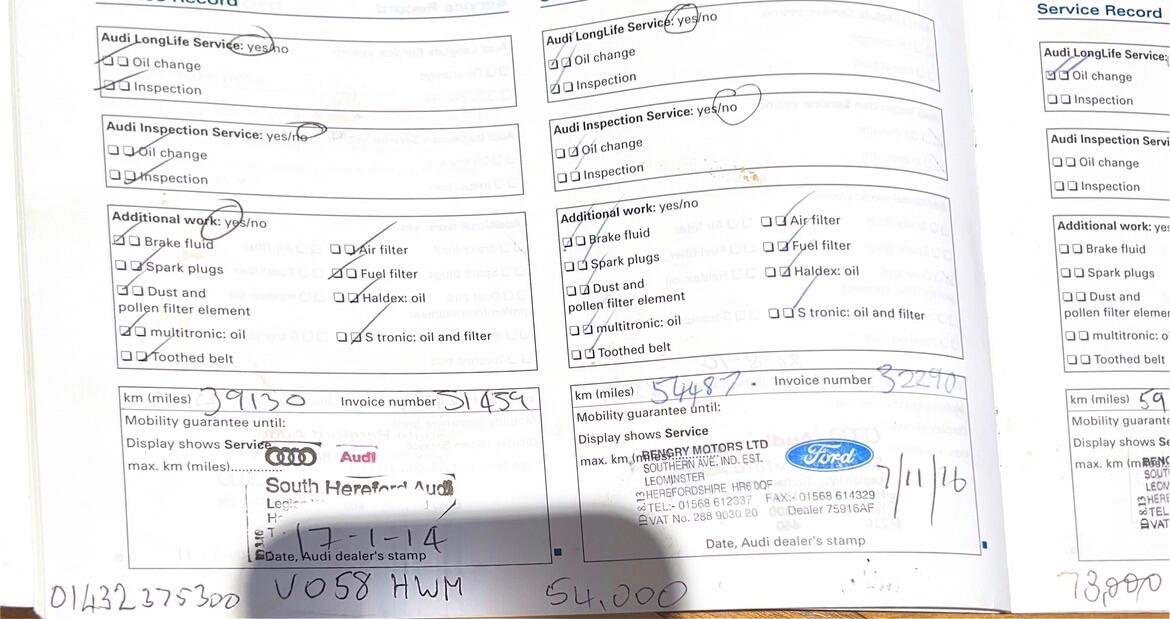 Service Record
Audi LongLife Service: yes/no
Oil change
Inspection
Audi Inspection Service: yes/no
Oil change
Inspection
Additional work: yes/no
Brake fluid
Air filter
Spark plugs
Fuel filter
Dust and
pollen filter element
Haldex: oil
multitronic: oil
S tronic: oil and filter
Toothed belt
km (miles) 39130 Invoice number 51459
Mobility guarantee until:
Display shows Service
max. km (miles)............
Audi
South Hereford Audi
17-1-14
Date, Audi dealer's stamp
01432375300
VO58 HWM
Audi LongLife Service: yes/no
Oil change
Inspection
Audi Inspection Service: yes/no
Oil change
Inspection
Additional work: yes/no
Brake fluid
Air filter
Spark plugs
Fuel filter
Dust and
pollen filter element
Haldex: oil
multitronic: oil
S tronic: oil and filter
Toothed belt
km (miles) 54487. Invoice number 32290
Mobility guarantee until:
Display shows Service
max. km (miles)
BENGRY MOTORS LTD
SOUTHERN AVE. IND. EST.
LEOMINSTER
HEREFORDSHIRE HR6 0QF
TEL:- 01568 612337 FAX:- 01568 614329
VAT No. 288 9030 20 Dealer 75916AF
ID 8.13
Ford
7/11/16
Date, Audi dealer's stamp
54,000
Service Record
Audi LongLife Service:
Oil change
Inspection
Audi Inspection Servi
Oil change
Inspection
Additional work: yes
Brake fluid
Spark plugs
Dust and
pollen filter eleme
multitronic: o
Toothed belt
km (miles) 59
Mobility guarante
Display shows Se
max. km (m
BENG
SOUT
LEOM
HERE
TEL
VAT
ID 8.13
73,000